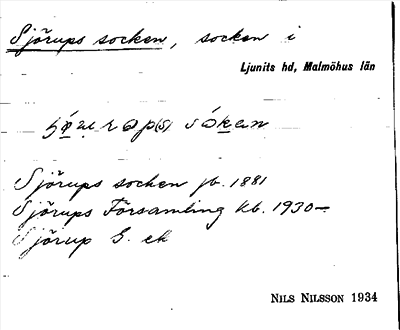 Sjörups socken, socken i
Ljunits hd, Malmöhus län
Sjörups socken jb. 1881
Sjörups Församling kb. 1930–
Sjörup S. ek
NILS NILSSON 1934